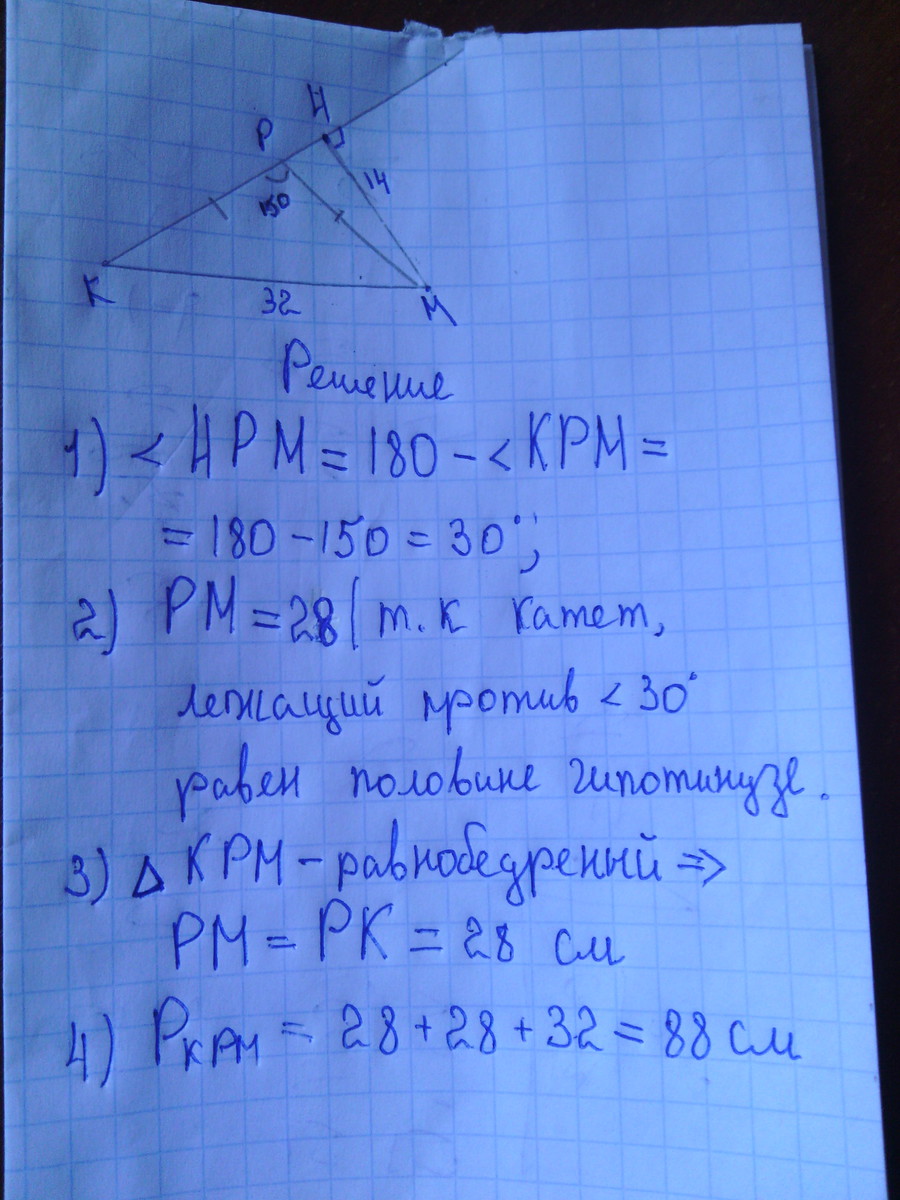 H
P
14
150
K
32
M
Решение
1) < HPM = 180 - < KPM =
= 180 - 150 = 30°;
2) PM = 28 ( т.к катет,
лежащий против < 30°
равен половине гипотинузе.
3) Δ KPM - равнобедреный =>
PM = PK = 28 см
4) PKPM = 28 + 28 + 32 = 88 см